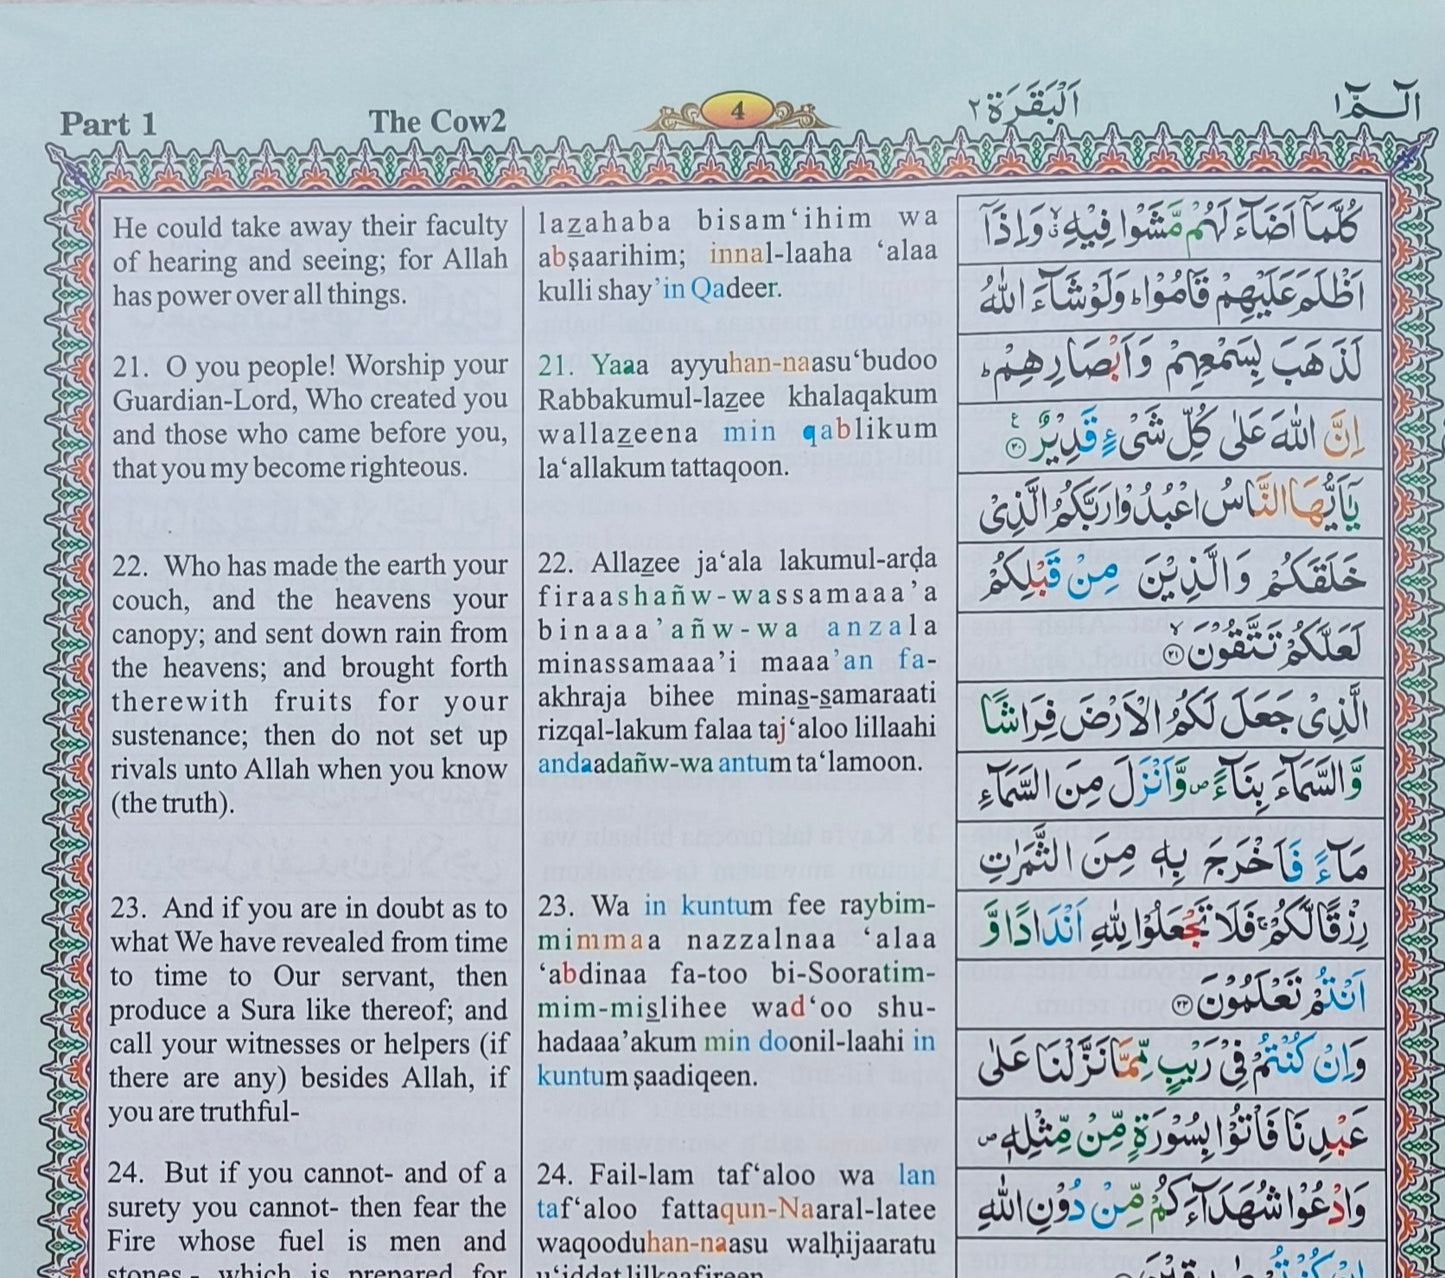 Part 1 The Cow2 4 اَلْبَقَرَة ٢ الٓـمّٓ ١
He could take away their faculty
of hearing and seeing; for Allah
has power over all things.
21. O you people! Worship your
Guardian-Lord, Who created you
and those who came before you,
that you my become righteous.
22. Who has made the earth your
couch, and the heavens your
canopy; and sent down rain from
the heavens; and brought forth
therewith fruits for your
sustenance; then do not set up
rivals unto Allah when you know
(the truth).
23. And if you are in doubt as to
what We have revealed from time
to time to Our servant, then
produce a Sura like thereof; and
call your witnesses or helpers (if
there are any) besides Allah, if
you are truthful-
24. But if you cannot- and of a
surety you cannot- then fear the
Fire whose fuel is men and
stones,- which is prepared for
lazahaba bisam‘ihim wa
abṣaarihim; innal-laaha ‘alaa
kulli shay’in Qadeer.
21. Yaaa ayyuhan-naasu‘budoo
Rabbakumul-lazee khalaqakum
wallazeena min qablikum
la‘allakum tattaqoon.
22. Allazee ja‘ala lakumul-arḍa
firaashañw-wassamaaa’a
binaaa’añw-wa anzala
minassamaaa’i maaa’an fa-
akhraja bihee minas-samaraati
rizqal-lakum falaa taj‘aloo lillaahi
andaadañw-wa antum ta‘lamoon.
23. Wa in kuntum fee raybim-
mimmaa nazzalnaa ‘alaa
‘abdinaa fa-too bi-Sooratim-
mim-mislihee wad‘oo shu-
hadaaa’akum min doonil-laahi in
kuntum ṣaadiqeen.
24. Fail-lam taf‘aloo wa lan
taf‘aloo fattaqun-Naaral-latee
waqooduhan-naasu walḥijaaratu
u‘iddat lilkaafireen
كُلَّمَآ اَضَآءَ لَهُمْ مَّشَوْا فِيْهِ ۙ وَاِذَآ
اَظْلَمَ عَلَيْهِمْ قَامُوْا ؕ وَلَوْ شَآءَ اللّٰهُ
لَذَهَبَ بِسَمْعِهِمْ وَاَبْصَارِهِمْ ؕ
اِنَّ اللّٰهَ عَلٰى كُلِّ شَىْءٍ قَدِيْرٌ ﴿٢٠﴾
يٰٓاَيُّهَا النَّاسُ اعْبُدُوْا رَبَّكُمُ الَّذِىْ
خَلَقَكُمْ وَالَّذِيْنَ مِنْ قَبْلِكُمْ
لَعَلَّكُمْ تَتَّقُوْنَ ۙ﴿٢١﴾
الَّذِىْ جَعَلَ لَكُمُ الْاَرْضَ فِرَاشًا
وَّالسَّمَآءَ بِنَآءً ۪ وَّاَنْزَلَ مِنَ السَّمَآءِ
مَآءً فَاَخْرَجَ بِهٖ مِنَ الثَّمَرٰتِ
رِزْقًا لَّكُمْ ۚ فَلَا تَجْعَلُوْا لِلّٰهِ اَنْدَادًا وَّ
اَنْتُمْ تَعْلَمُوْنَ ﴿٢٢﴾
وَاِنْ كُنْتُمْ فِىْ رَيْبٍ مِّمَّا نَزَّلْنَا عَلٰى
عَبْدِنَا فَاْتُوْا بِسُوْرَةٍ مِّنْ مِّثْلِهٖ ۪
وَادْعُوْا شُهَدَآءَكُمْ مِّنْ دُوْنِ اللّٰهِ